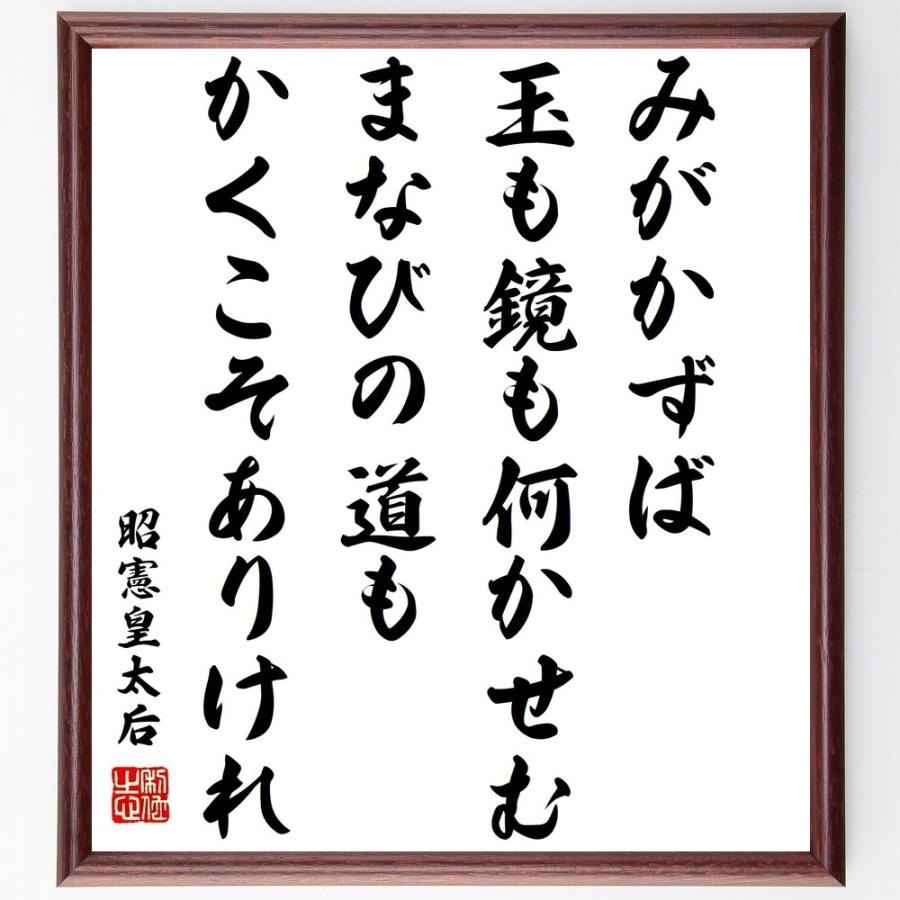 みがかずば
玉も鏡も何かせむ
まなびの道も
かくこそありけれ
昭憲皇太后